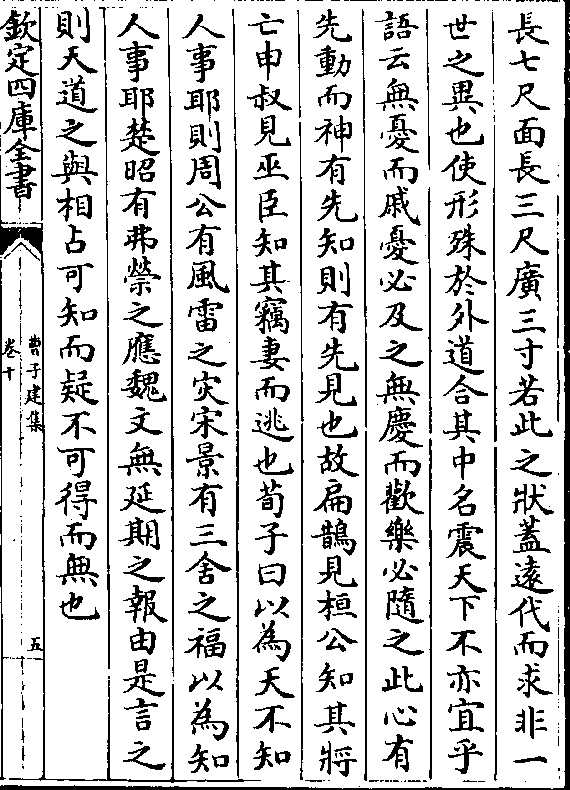 長七尺面長三尺廣三寸若此之狀蓋遠代而求非一
世之異也使形殊於外道合其中名震天下不亦宜乎
語云無憂而戚憂必及之無慶而歡樂必隨之此心有
先動而神有先知則有先見也故扁鵲見桓公知其將
亡申叔見巫臣知其竊妻而逃也荀子曰以為天不知
人事耶則周公有風雷之灾宋景有三舍之福以為知
人事耶楚昭有弗禜之應魏文無延期之報由是言之
則天道之與相占可知而疑不可得而無也
欽定四庫全書
曹子建集
卷十
五